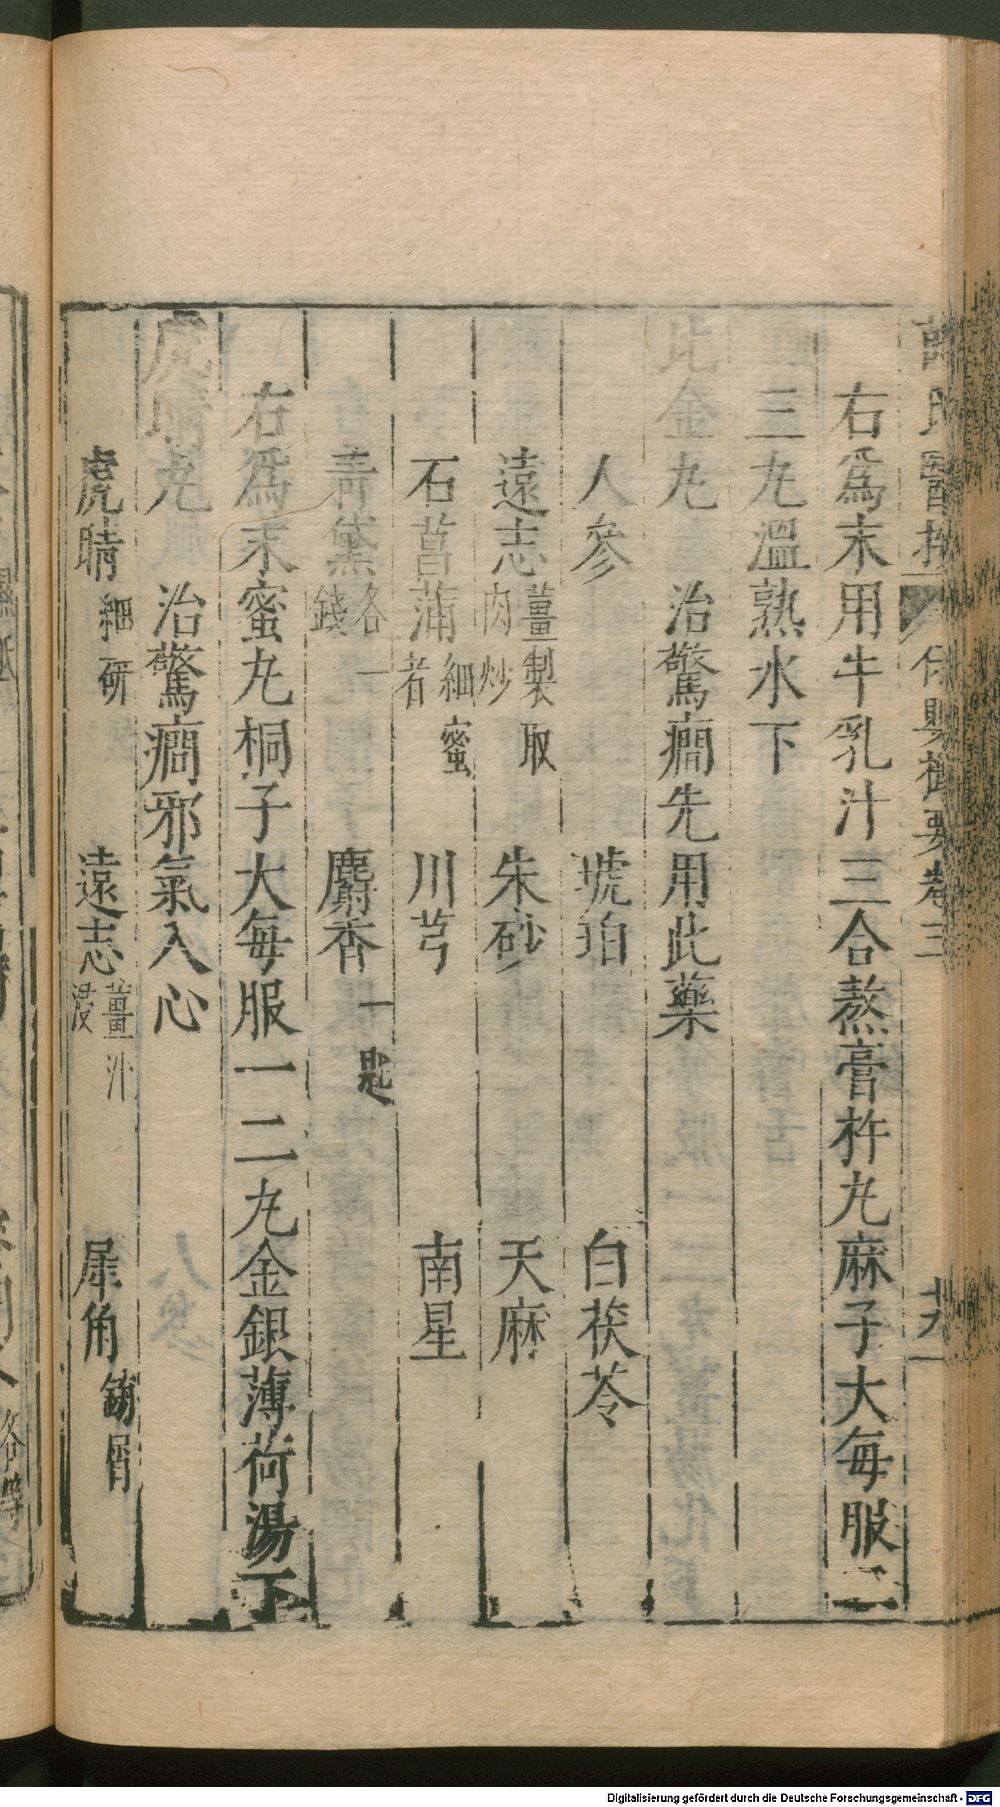 右爲末用牛乳汁三合熬膏杵丸麻子大每服二
三丸溫熟水下
比金丸　治驚癎先用此藥
人參　琥珀　白茯苓
遠志薑製取肉炒　朱砂　天麻
石菖蒲細蜜者　川芎　南星
青黛各一錢　麝香一匙
右爲末蜜丸桐子大每服一二丸金銀薄荷湯下
虎睛丸　治驚癎邪氣入心
虎睛細研　遠志薑汁浸　犀角鎊屑
Digitalisierung gefördert durch die Deutsche Forschungsgemeinschaft - DFG